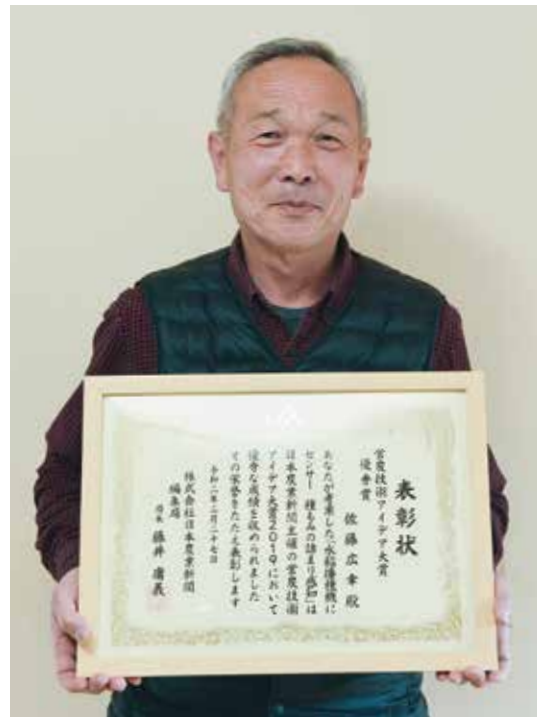 表彰状
営農技術アイデア大賞
優秀賞
佐藤広幸殿
あなたが考案した「水稲播種機に
センサー 種もみの詰まり感知」は
日本農業新聞主催の営農技術
アイデア大賞2019において
優秀な成績を収められました
その栄誉をたたえ表彰します
令和二年二月二十七日
株式会社日本農業新聞
編集局
局長 藤井庸義